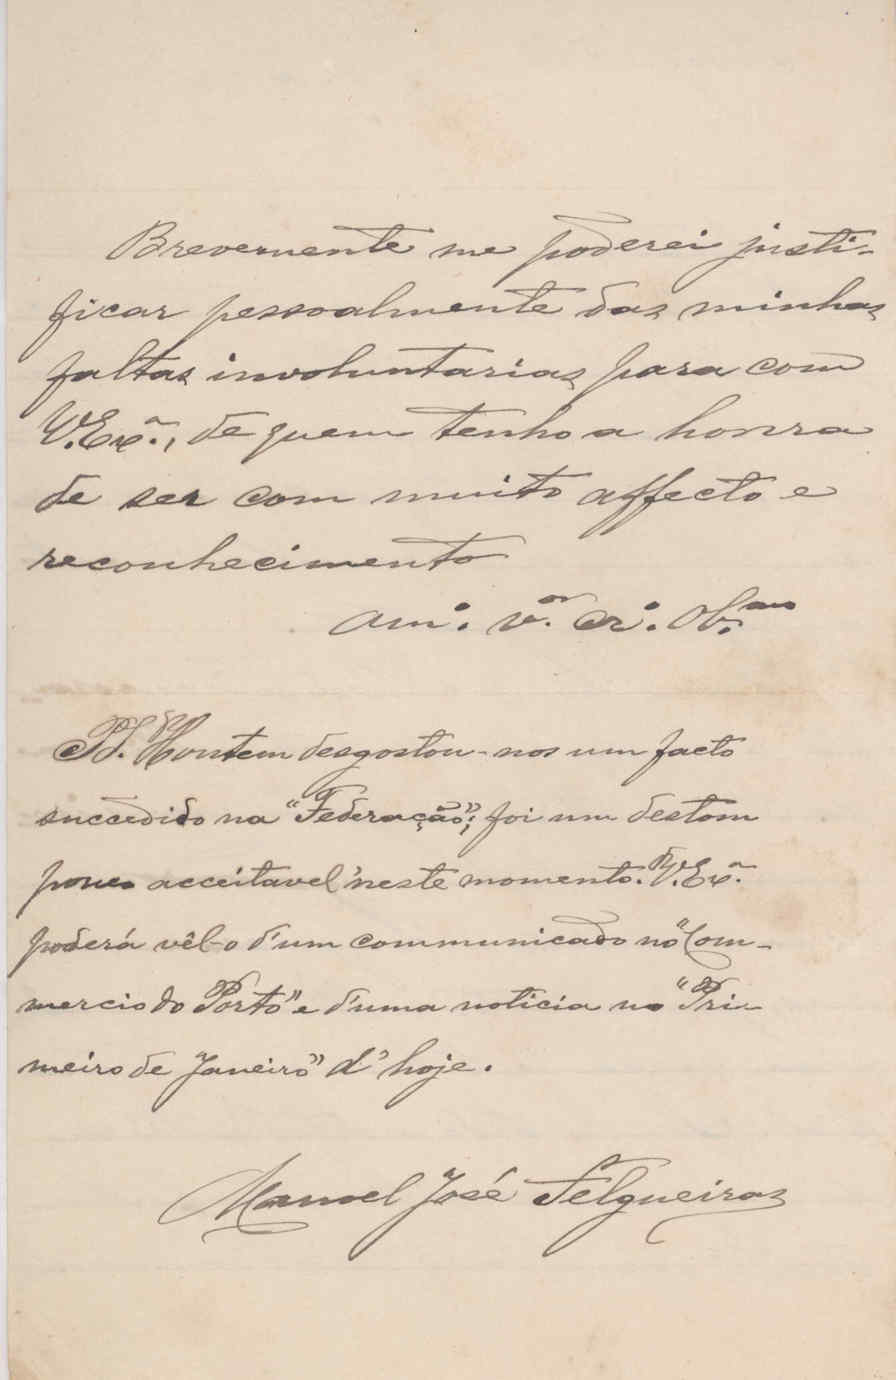 Brevemente me poderei justi-
ficar pessoalmente das minhas
faltas involuntarias para com
V. Exª., de quem tenho a honra
de ser com muito affecto e
reconhecimento
Am.º v.ºr cr.º Ob.mo
PS. Hontem desgostou-nos um facto
succedido na "Federação"; foi um destom
pouco acceitavel n'este momento. V. Exª.
poderá vêl-o d'um communicado no "Com-
mercio do Porto" e d'uma noticia no "Pri-
meiro de Janeiro" d'hoje.
Manoel José Felgueiras